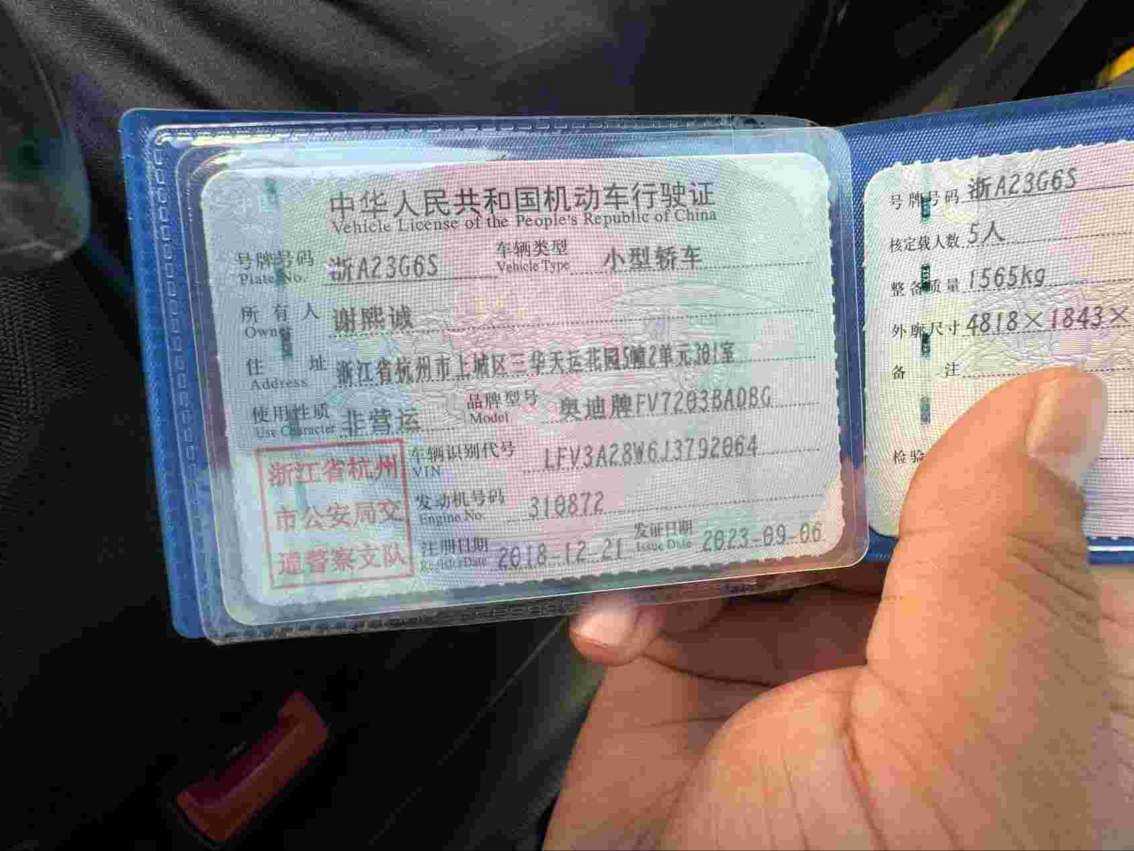 中华人民共和国机动车行驶证
Vehicle License of the People's Republic of China
号牌号码 浙A23G6S 车辆类型 小型轿车
Plate No. Vehicle Type
所有人 谢熙诚
Owner
住址 浙江省杭州市上城区三华天运花园5幢2单元301室
Address
使用性质 非营运 品牌型号 奥迪牌FV7203BADBG
Use Character Model
浙江省杭州
市公安局交
道警察支队
车辆识别代号 LFV3A28W6J3792064
VIN
发动机号码 310872
Engine No.
注册日期 2018-12-21 发证日期 2023-09-06
Register Date Issue Date
号牌号码 浙A23G6S
核定载人数 5人
整备质量 1565kg
外廓尺寸 4818×1843×
备注
检验